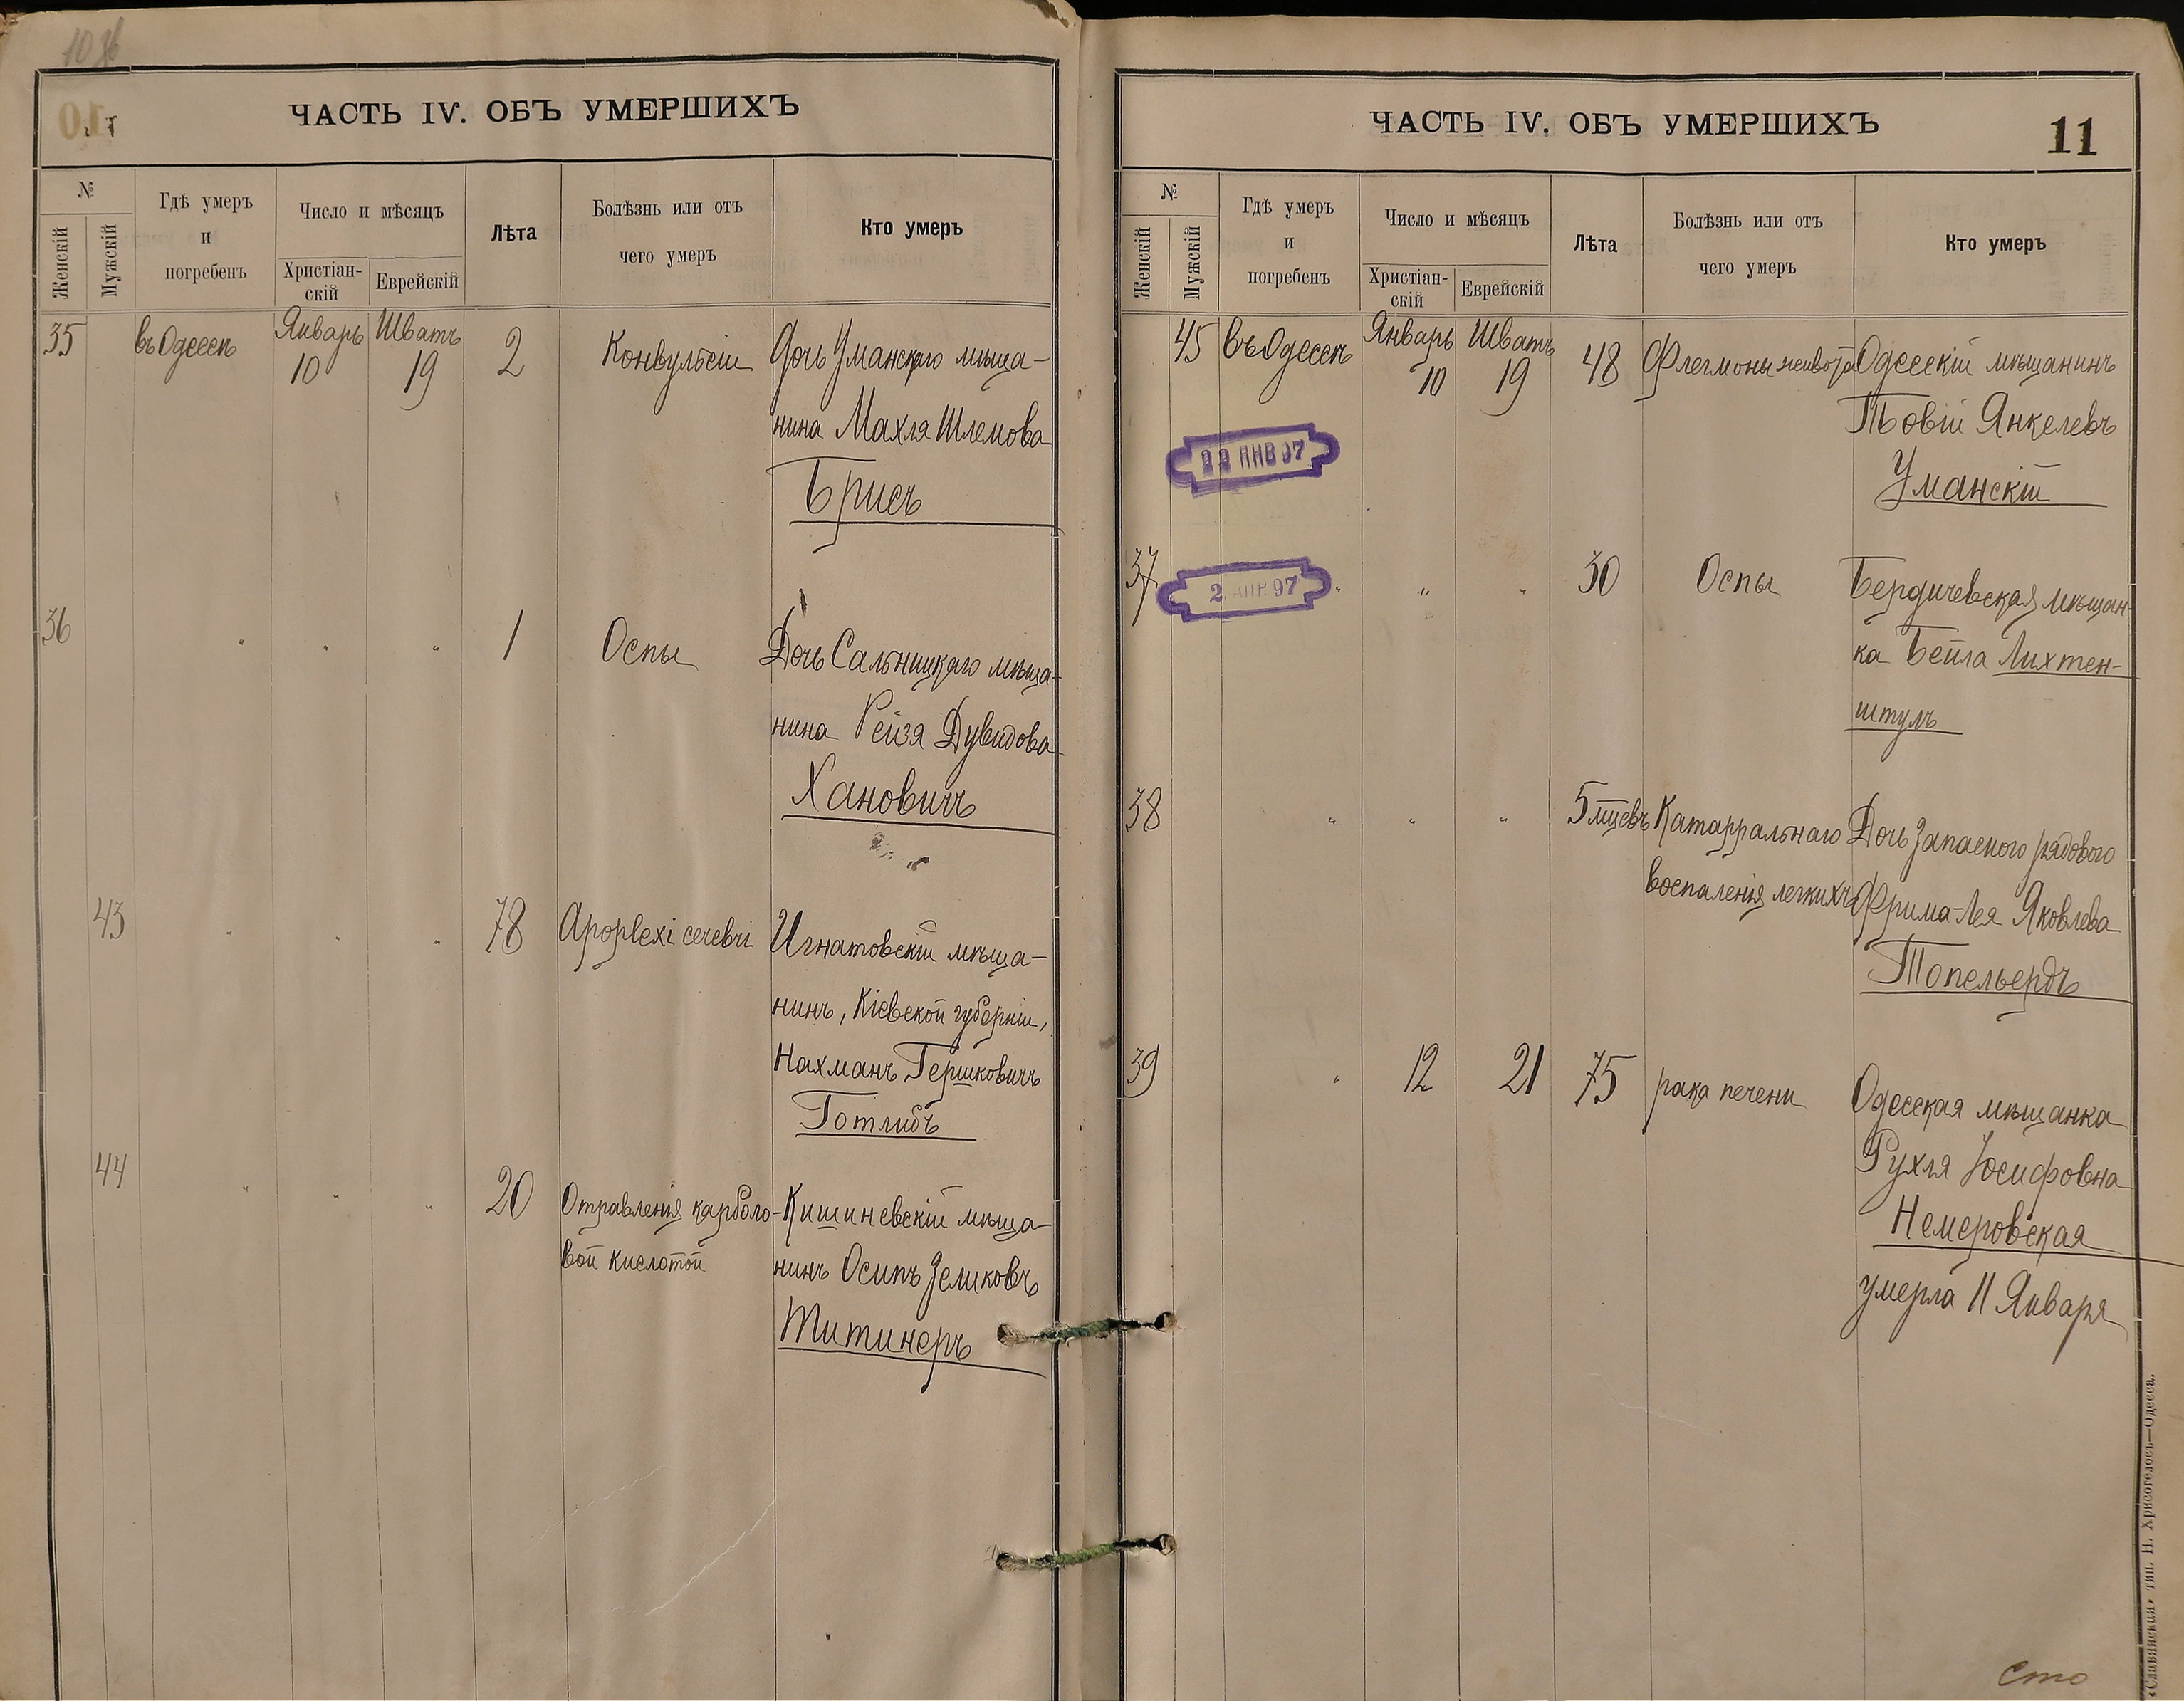 10 об
ЧАСТЬ IV. ОБЪ УМЕРШИХЪ
№
Женскій
Мужскій
Гдѣ умеръ
и
погребенъ
Число и мѣсяцъ
Христіан-
скій
Еврейскій
Лѣта
Болѣзнь или отъ
чего умеръ
Кто умеръ
35 въ Одессѣ Январь 10 Шватъ 19 2 Конвульсіи Дочь Уманскаго мѣща-
нина Махля Шлемова
Брисъ
36 " " " 1 Оспы Дочь Сальницкаго мѣща-
нина Рейзя Дувидова
Хановичъ
43 " " " 78 Apoplexi cerebri Игнатовскій мѣща-
нинъ, Кіевской губерніи,
Нахманъ Гершковичъ
Готлибъ
44 " " " 20 Отравленія карболо- Кишиневскій мѣща-
вой кислотой нинъ Осипъ Зеликовъ
Титинеръ
ЧАСТЬ IV. ОБЪ УМЕРШИХЪ
11
№
Женскій
Мужскій
Гдѣ умеръ
и
погребенъ
Число и мѣсяцъ
Христіан-
скій
Еврейскій
Лѣта
Болѣзнь или отъ
чего умеръ
Кто умеръ
45 въ Одессѣ Январь 10 Шватъ 19 48 Флегмоны живота Одесскій мѣщанинъ
Товій Янкелевъ
22 ЯНВ 97
Уманскій
37 " " " 30 Оспы Бердичевская мѣщан-
2 АПР. 97
ка Бейла Лихтен-
штулъ
38 " " " 5 мцевъ Катаррального Дочь запасного рядового
воспаленія легкихъ Фрима-Лея Яковлева
Топельердъ
39 " 12 21 75 рака печени Одесская мѣщанка
Рухля Іосифовна
Немеровская
умерла 11 Января
Сто
«Славянская» тип. Н. Хрисогелосъ—Одесса.